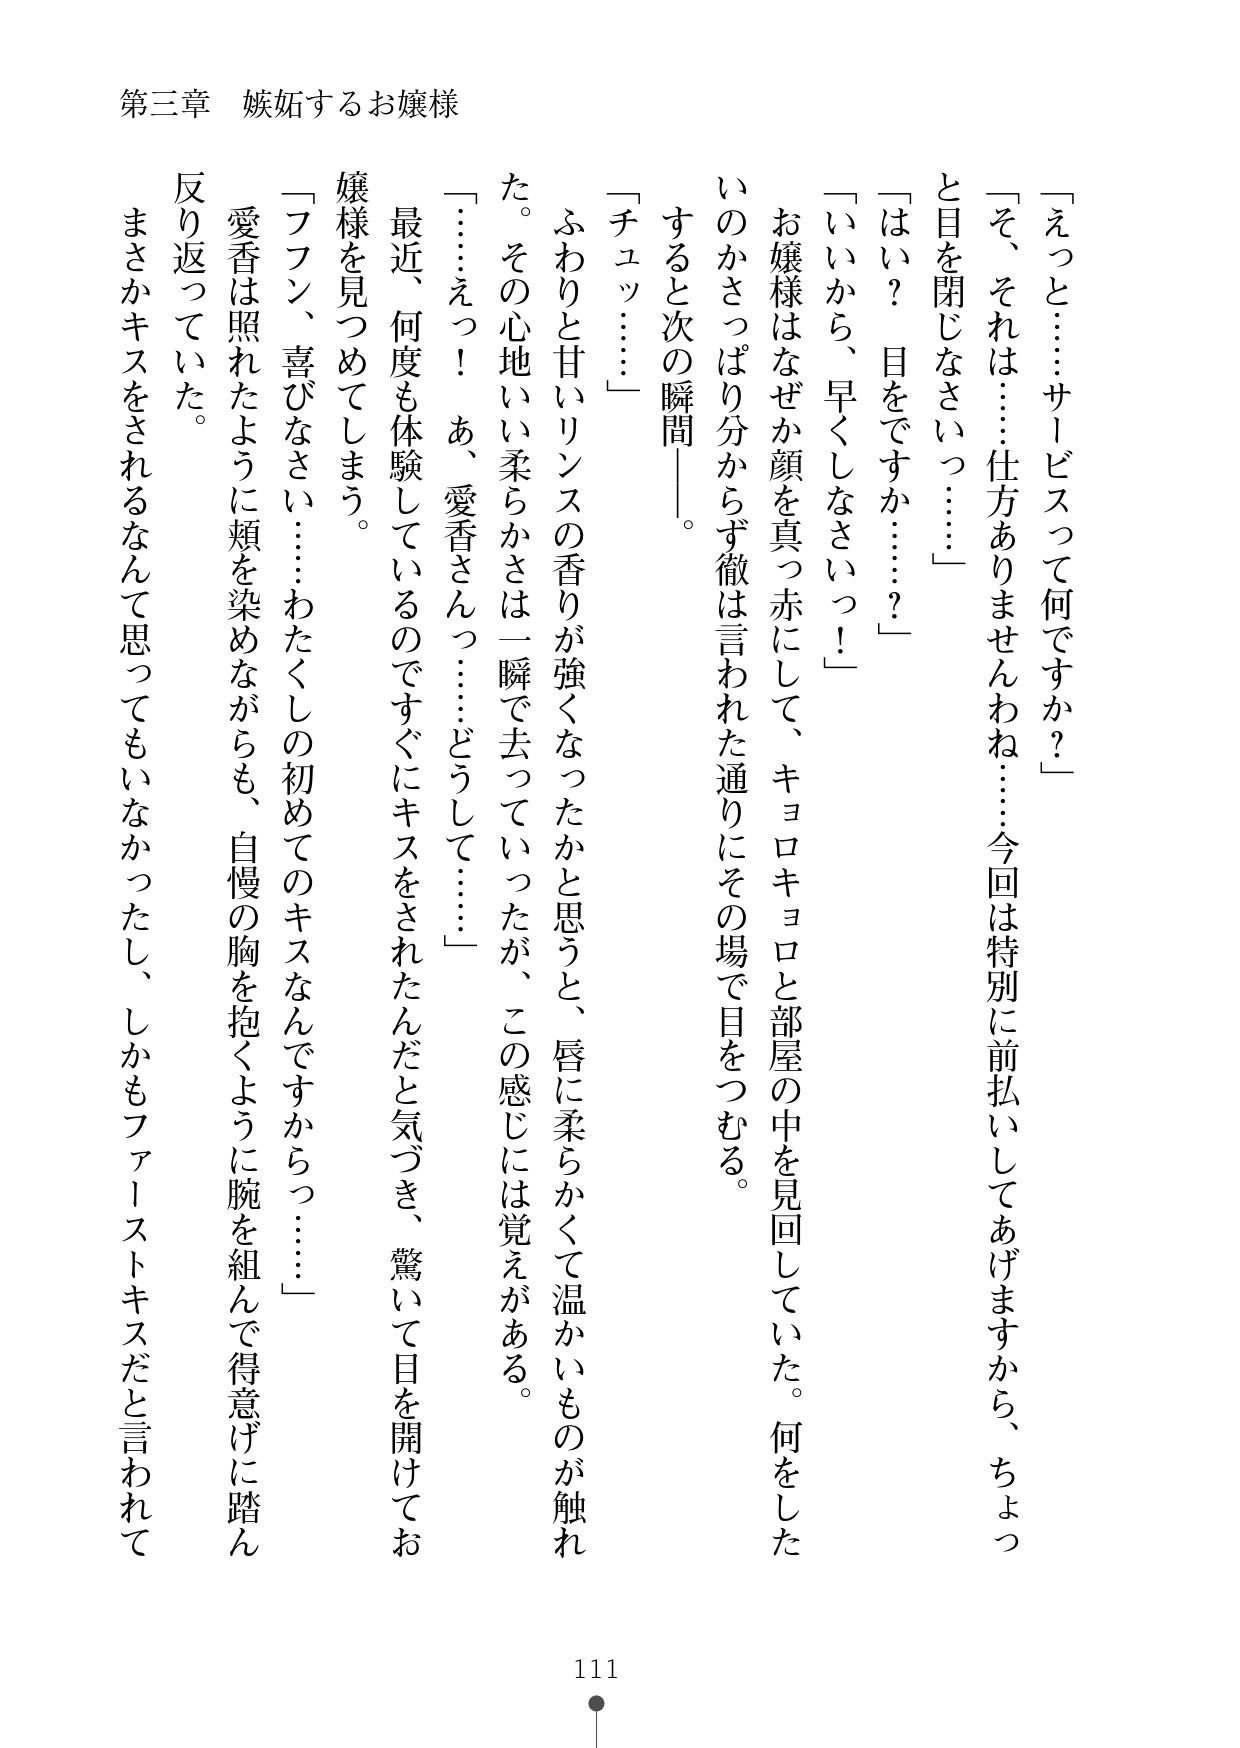 第三章　嫉妬するお嬢様
「えっと……サービスって何ですか？」
「そ、それは……仕方ありませんわね……今回は特別に前払いしてあげますから、ちょっ
と目を閉じなさいっ……」
「はい？　目をですか……？」
「いいから、早くしなさいっ！」
　お嬢様はなぜか顔を真っ赤にして、キョロキョロと部屋の中を見回していた。何をした
いのかさっぱり分からず徹は言われた通りにその場で目をつむる。
　すると次の瞬間――。
「チュッ……」
　ふわりと甘いリンスの香りが強くなったかと思うと、唇に柔らかくて温かいものが触れ
た。その心地いい柔らかさは一瞬で去っていったが、この感じには覚えがある。
「……えっ！　あ、愛香さんっ……どうして……」
　最近、何度も体験しているのですぐにキスをされたんだと気づき、驚いて目を開けてお
嬢様を見つめてしまう。
「フフン、喜びなさい……わたくしの初めてのキスなんですからっ……」
　愛香は照れたように頬を染めながらも、自慢の胸を抱くように腕を組んで得意げに踏ん
反り返っていた。
　まさかキスをされるなんて思ってもいなかったし、しかもファーストキスだと言われて
111